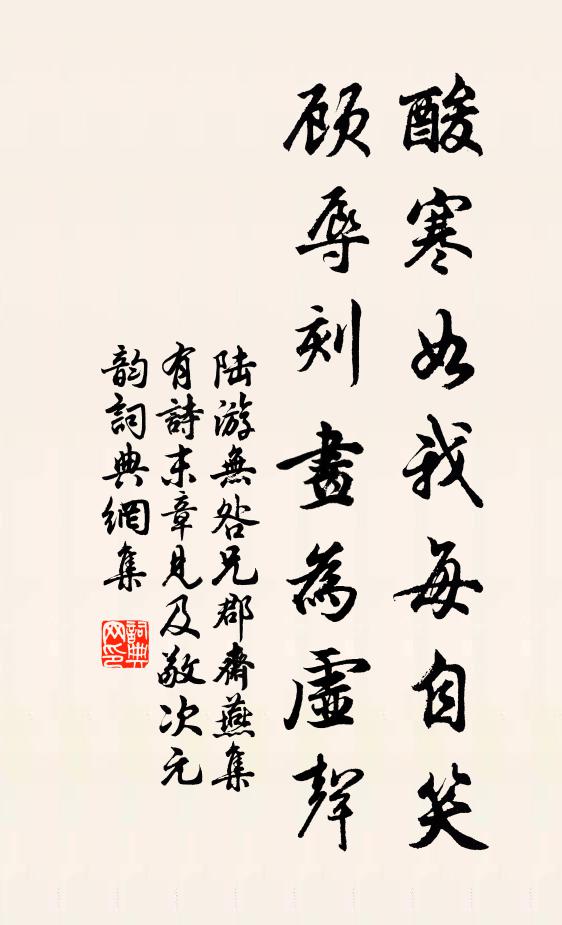 酸寒如我每自笑
顾辱刻畫為虛聲
陆游無咎兄郡齋燕集
有詩末章見及敬次元
韵詞典網集
詞典网印